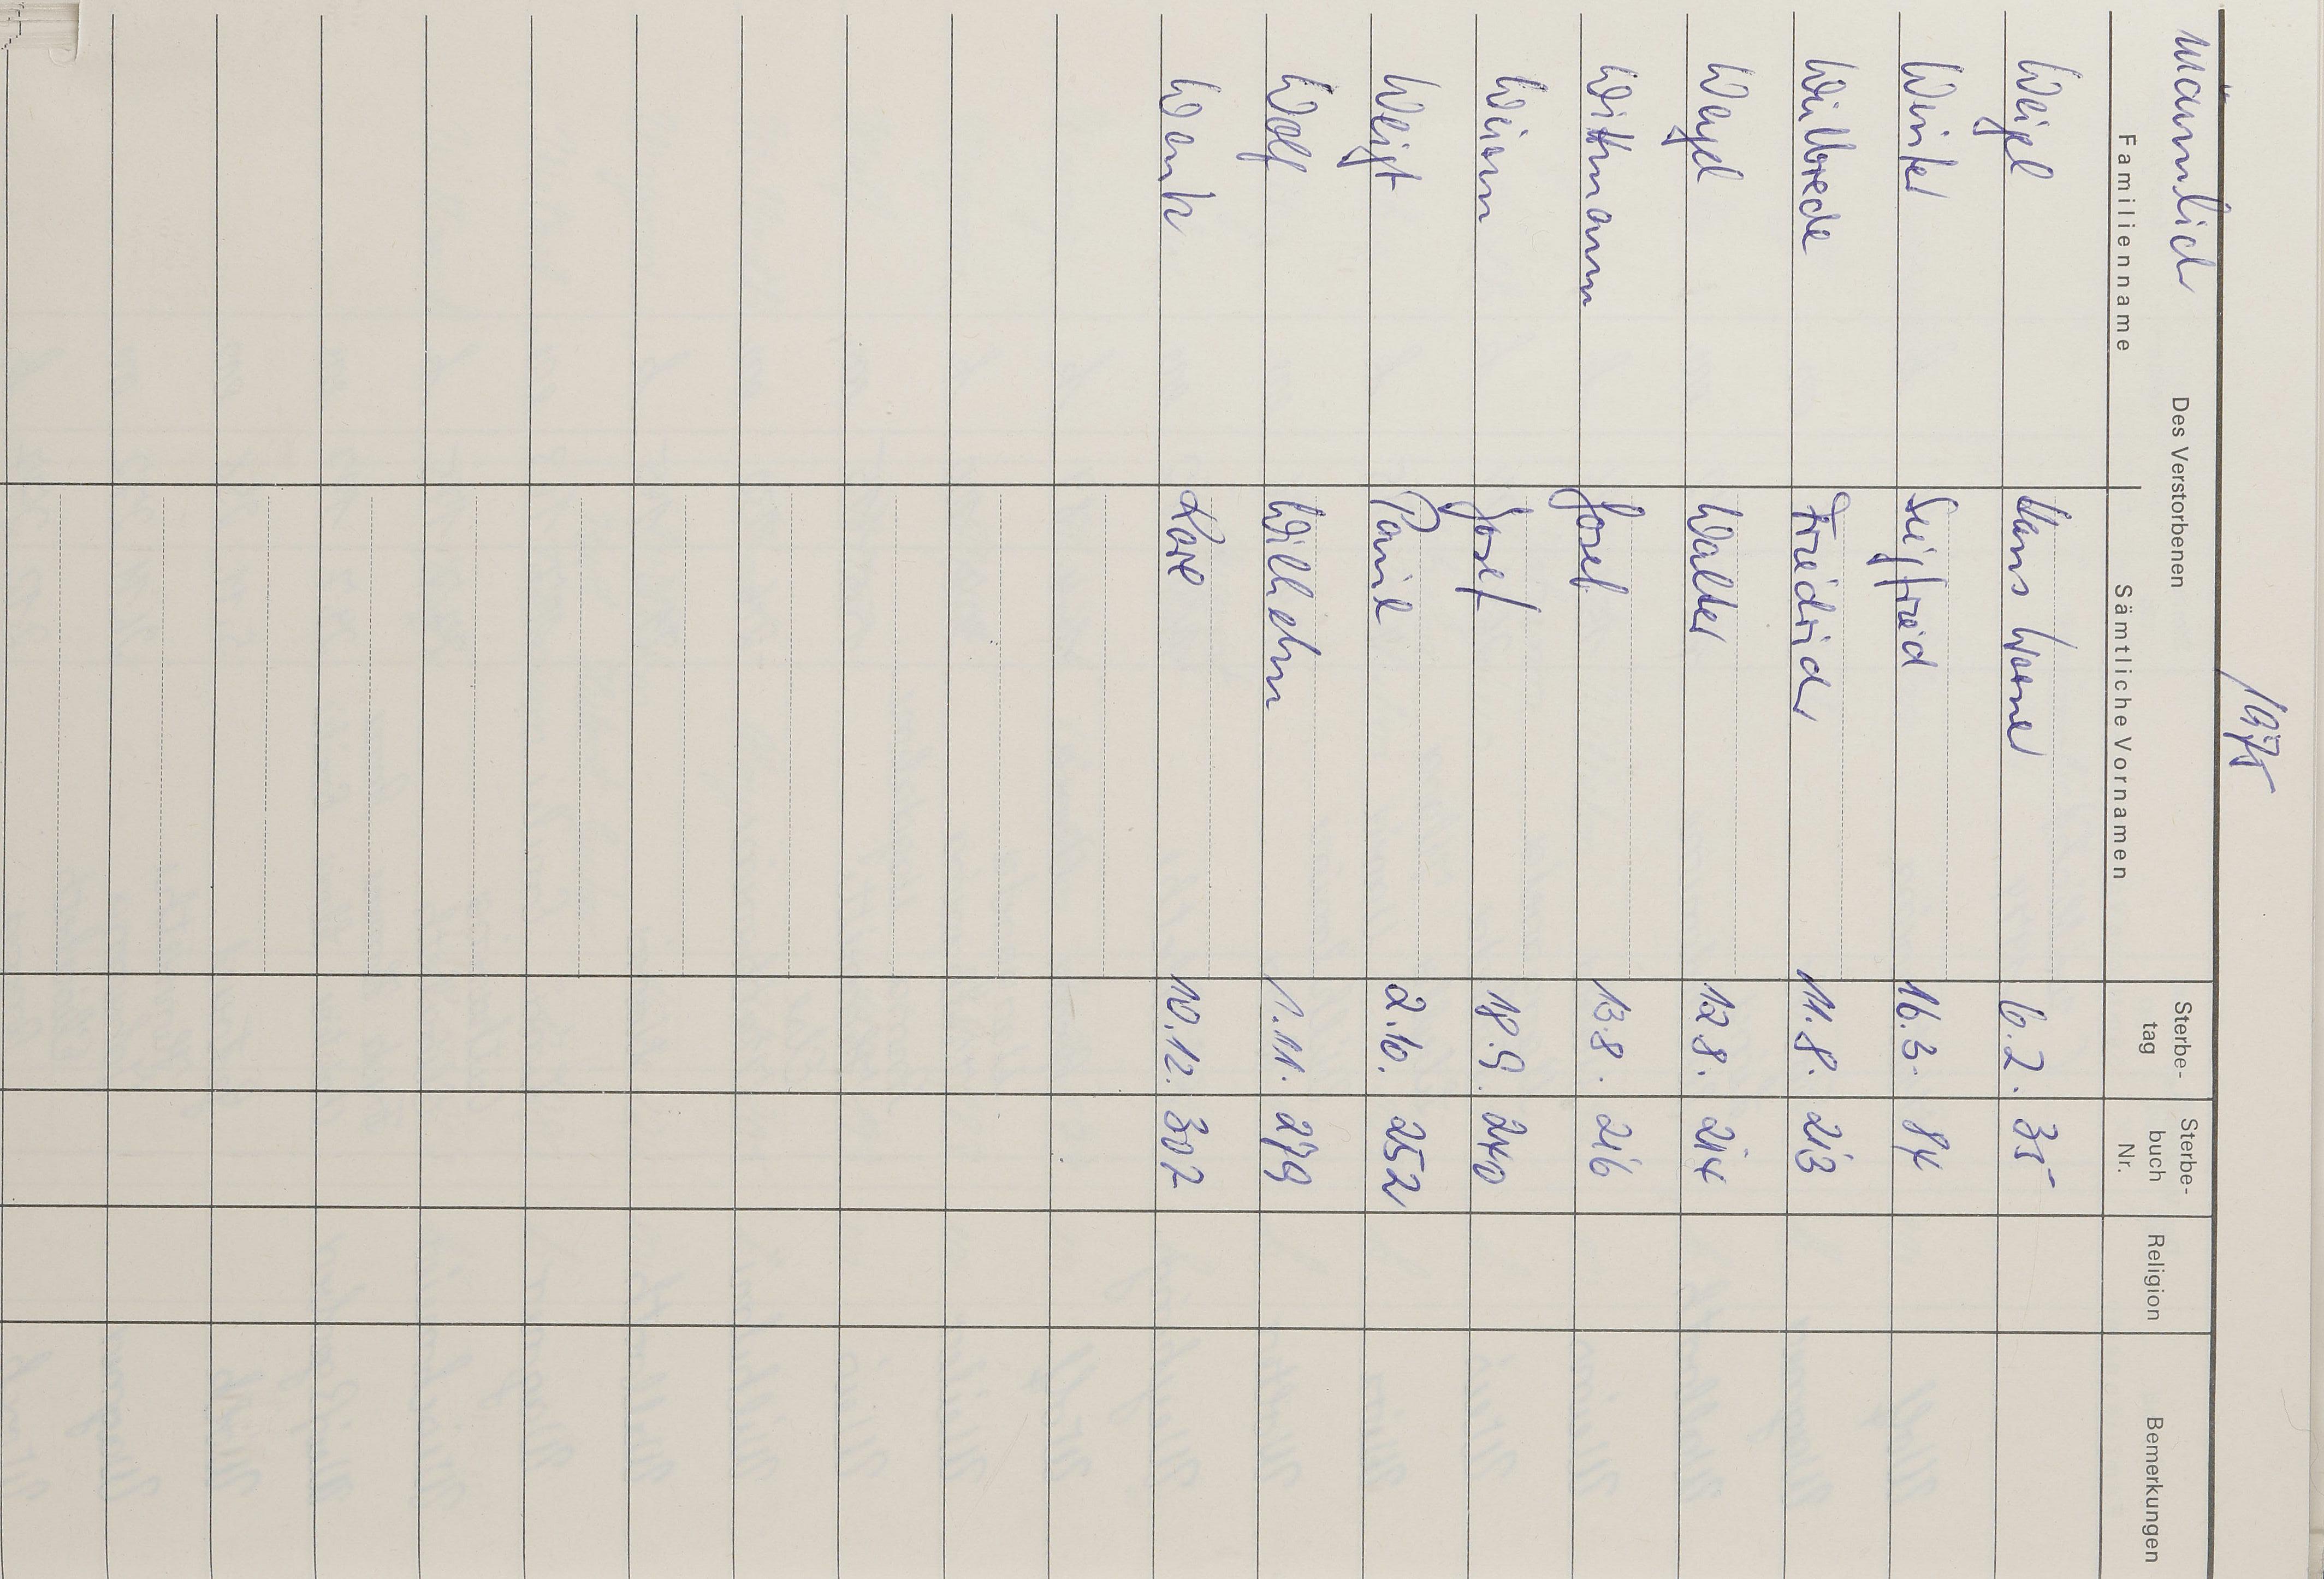 1975
männlich
Des Verstorbenen
Sterbe-
tag
Sterbe-
buch
Nr.
Religion
Bemerkungen
Familienname
Sämtliche Vornamen
Weigel Hans Werner 6.2. 35
Winkel Siegfried 16.3. 84
Wülbrede Friedrich 11.8. 213
Weyel Walter 12.8. 214
Wittmann Josef 13.8. 216
Josef 18.9. 240
Weigt Paul 2.10. 252
Wolf Wilhelm 1.11. 279
Wank Karl 10.12. 302